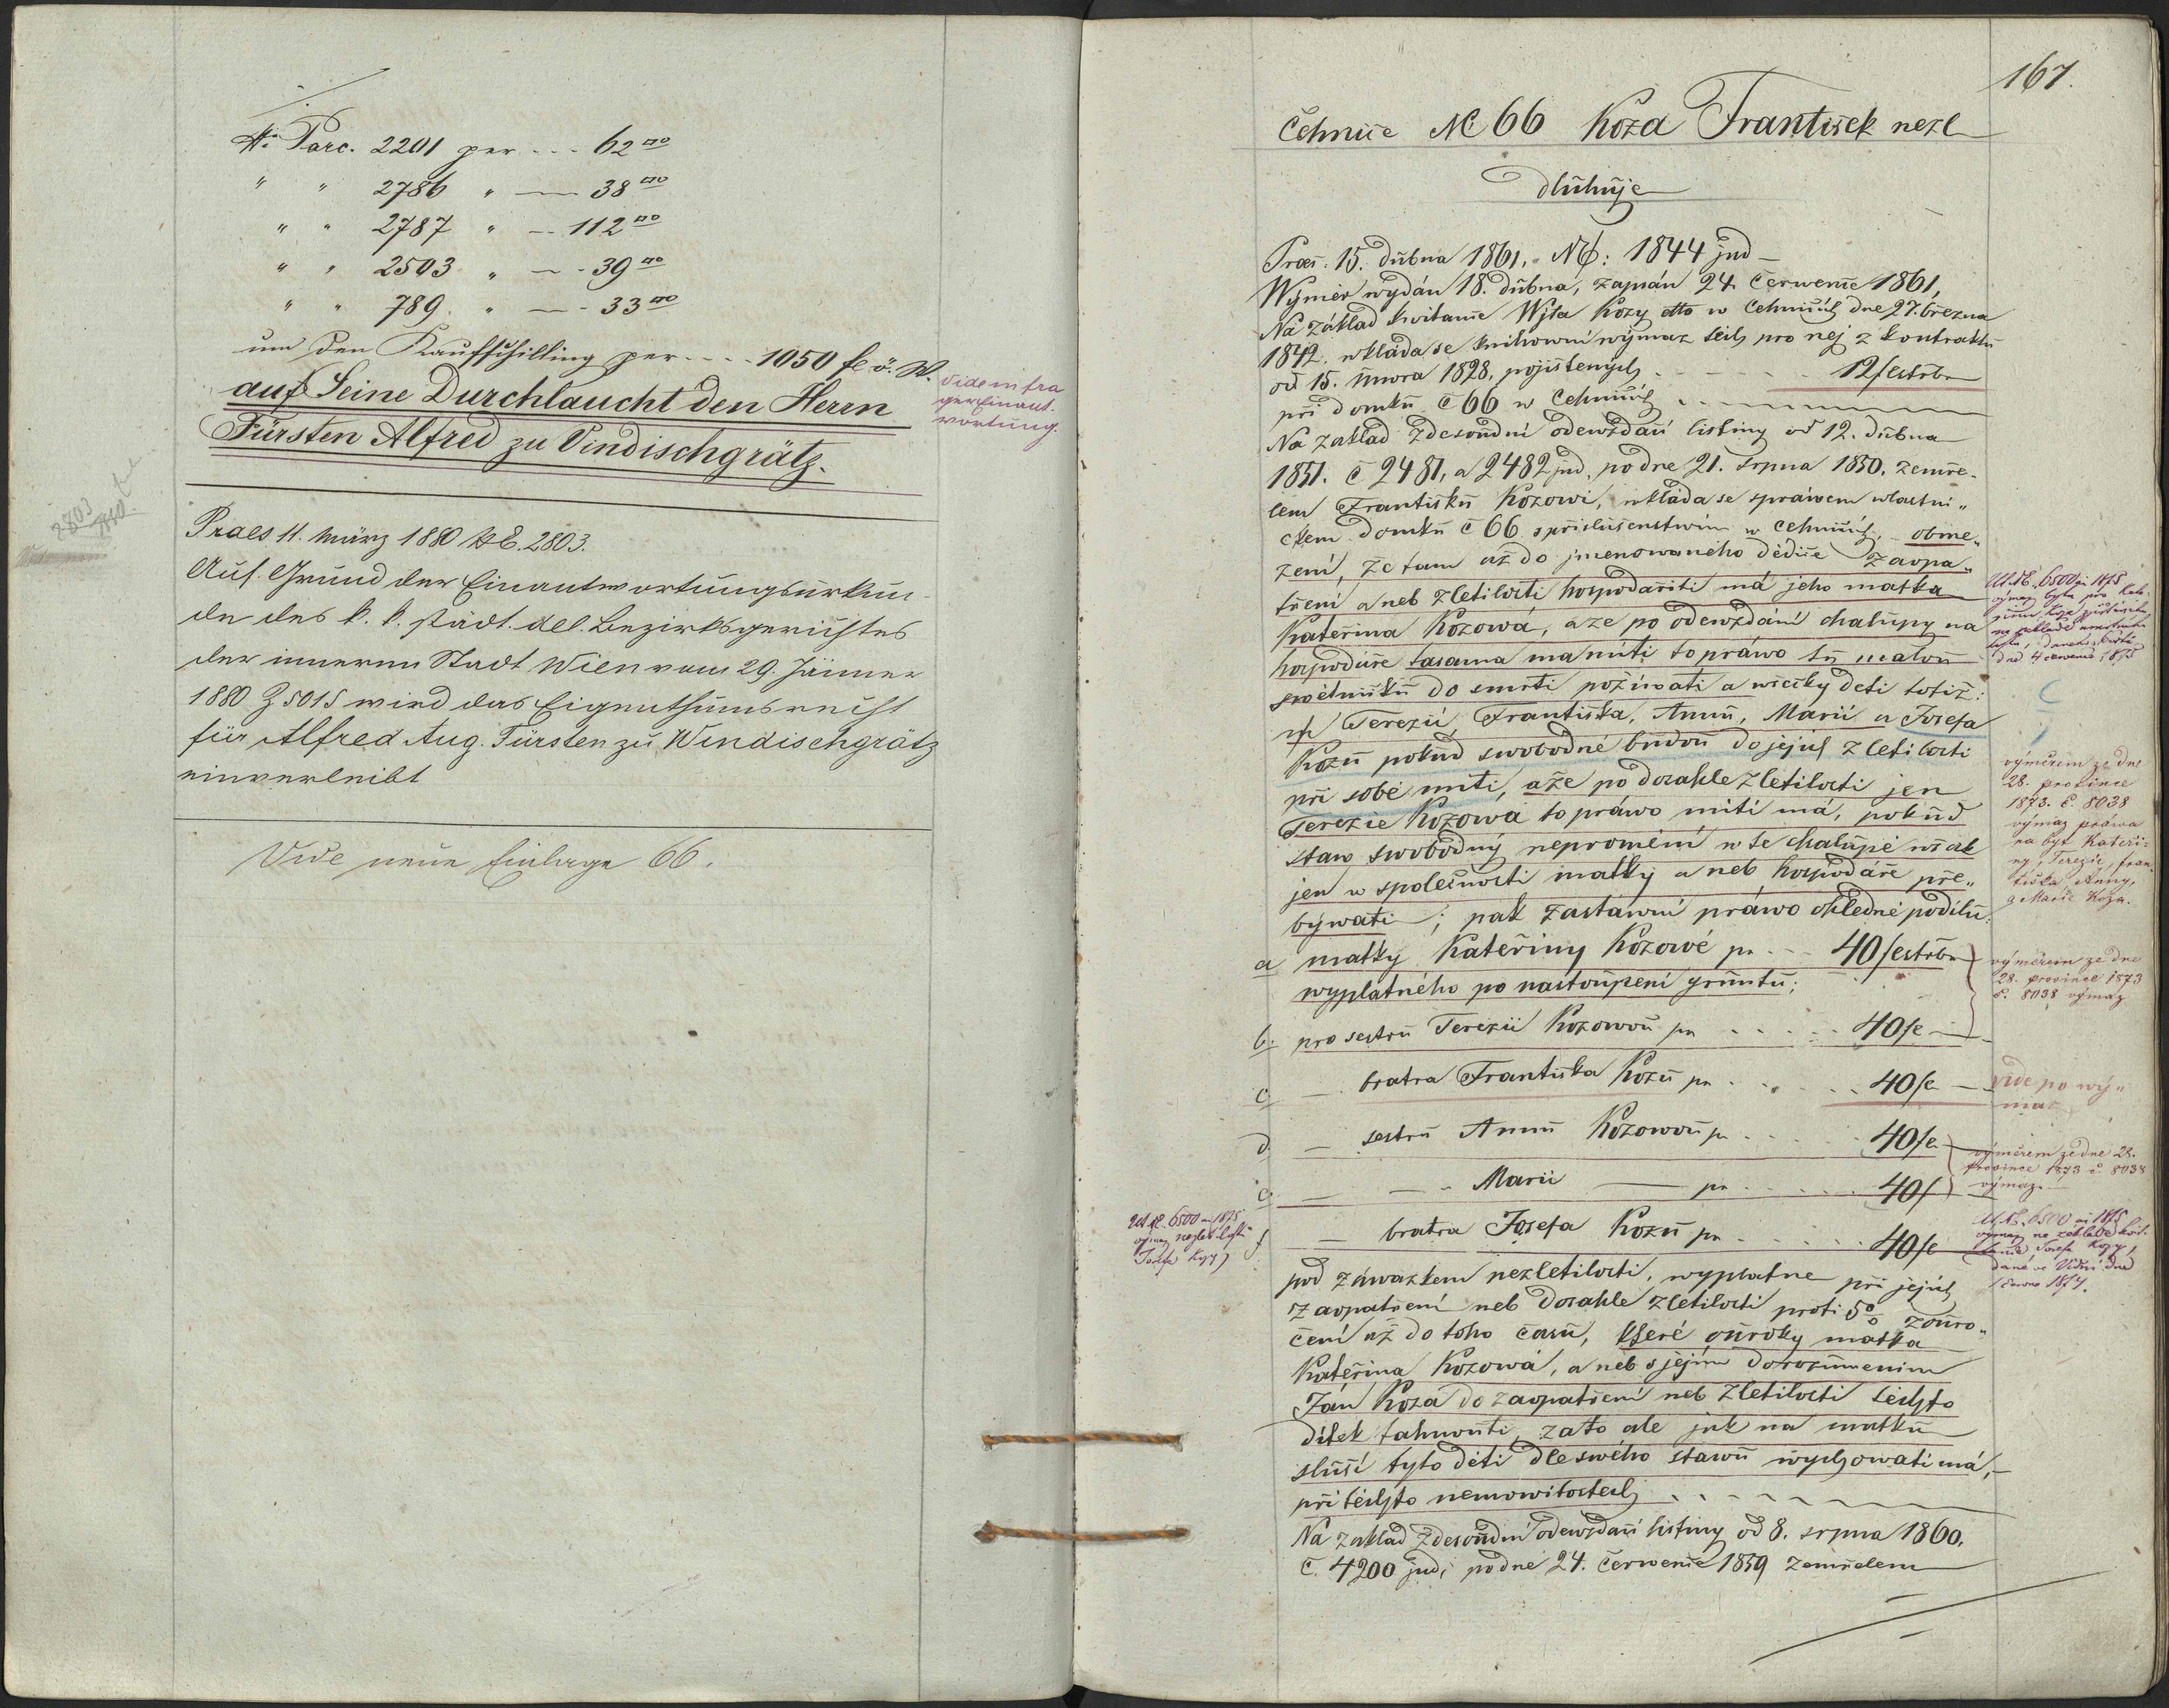 № Parc. 2201 per - - - 62 □°
" " 2786 " — 38 □°
" " 2787 " — 112 □°
" " 2503 " — 39 □°
" " 789. " — 33 □°
um den Kaufschilling per - - - - 1050 fl ö. W.
auf Seine Durchlaucht den Herrn
Fürsten Alfred zu Vindischgrätz.
Vide infra
ger Einant-
wortung.
2803
1880
Praes 11. März 1880 NE. 2803.
Auf Grund der Einantwortungsurkun-
de des k. k. städt. del. Bezirksgerichtes
der inneren Stadt Wien vom 29. Jänner
1880 Z 5015 wird das Eigenthumsrecht
für Alfred Aug. Fürsten zu Windischgrätz
einverleibt
Vide neue Einlage 66.
167.
Čehnice № 66 Koza František nezl
dluhuje
Praes. 15. dubna 1861. NE: 1844 jud —
Wýměr wydán 18. dubna, zapsán 24. Čerwence 1861,
Na základ kwitance Wjta Kozy dtto w Cehnicých dne 27. března
1842. wkláda se knihowní wýmaz těch pro něj z kontraktu
od 15. února 1828. pojištených - - - 12 f estřbr
při domku č 66 w Cehnicých
Na zaklad zdesoudní odewzdací listiny od 12. dubna
1851. č 2481, a 2482 jud, po dne 21. srpna 1850. zemře-
lem Františku Kozowi, wkláda se spráwcem wlastni-
ckem domku č 66 s přislušenstwím w Cehnicých, obme-
zení, že tam až do jmenowaného dědice zaopa-
tření a neb zletilosti hospodařiti má jeho matka
Kateřina Kozowá, a že po odewzdání chalupy na
hospodáře tasama má míti to práwo tu malou
swětničku do smrti požíwati a wšecky děti totiž:
Terezii Františka, Annu, Marii a Josefa
Kozů pokud swobodné budou do jejich zletilosti
při sobě míti, a že po dosahle zletilosti jen
Terezie Kozowá to práwo míti má, pokud
staw swobodný nepromění w té chalupě wšak
jen w společnosti matky a neb hospodáře pře-
býwati; pak zastawní práwo ohledně podílů:
a matky Kateřiny Kozowé pr - - 40 f estřbr
wyplatného po nastoupení gruntu;
b. pro sestru Terezii Kozowou pr - - - - 40 f
c — bratra Františka Kozu pr - - - 40 f
d — sestru Annu Kozowou pr - - - 40 f
e — " Marii — pr - - - 40 f
f — bratra Josefa Kozu pr - - - 40 f
pod záwazkem nezletilosti, wyplatne při jejich
zaopatření neb dosahle zletilosti proti 5% zouro-
čení až do toho času, které ouroky matka
Kateřina Kozowá, a neb s jejím dorozuměním
Ján Koza do zaopatření neb zletilosti těchto
dítek tahnouti, zato ale jak na matku
sluší tyto děti dle swého stawu wychowati má,
při těchto nemowitostech
Na zaklad zdesoudní odewzdací listiny od 8. srpna 1860.
č. 4200 jud; po dne 24. Čerwence 1859 zemřelem
Ut NE. 6500 in 1875
dne 4 července 1875
výměrem ze dne
28. prosince
1873. č. 8038
výmaz práwa
na byt Kateři-
ny, Terezie, fran-
tiška, Anny,
a Marie Koza.
výměrem ze dne
28. prosince 1873
č. 8038 výmaz
Vide po wý-
maz
výměrem ze dne 28.
prosince 1873 č. 8038
výmaz.
Ut NE. 6500 in 1875
výmaz na základě kvit-
tance Josefa Kozy,
dané ve Vídni dne
Ut NE. 6500 in 1875
výmaz nezletilosti
Josefa Kozy